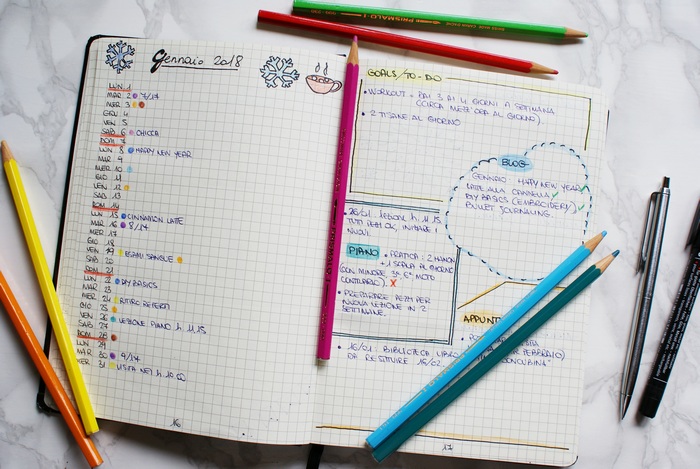 Gennaio 2018
LUN 1
MAR 2 7/17
MER 3
GIO 4
VEN 5
SAB 6 CHICCA
DOM 7
LUN 8 HAPPY NEW YEAR
MAR 9
MER 10
GIO 11
VEN 12
SAB 13
DOM 14
LUN 15 CINNAMON LATTE
MAR 16 8/17
MER 17
GIO 18
VEN 19 ESAMI SANGUE
SAB 20
DOM 21
LUN 22 DIY BASICS
MAR 23
MER 24 RITIRO REFERTI
GIO 25
VEN 26 LEZIONE PIANO h 11.15
SAB 27
DOM 28
LUN 29
MAR 30 9/17
MER 31 VISITA NEI h 10.00
16
GOALS/TO-DO
• WORKOUT - DAI 3 AI 4 GIORNI A SETTIMANA
(CORSA MEZZ'ORA AL GIORNO).
• 2 TISANE AL GIORNO
BLOG
GENNAIO: HAPPY NEW YEAR
LATTE ALLA CANNELLA
DIY BASICS (EMBROIDERY)
BULLET JOURNALING
• 26/01 LEZIONE h. 11.15
NUOVI.
PIANO • PRATICA: 2 MANONI
+ 1 SCALA AL GIORNO
(CON MINORE, 3ª, 6ª MOTO
CONTRARIO). X
• PREPARARE PEZZI PER
NUOVA LEZIONE IN 2
SETTIMANE.
APPUNT
• 16/01: BIBLIOTECA LIBRO
DA RESTITUIRE 15/02
FEBBRAIO)
CONCUBINA"
17
PRISMALO I